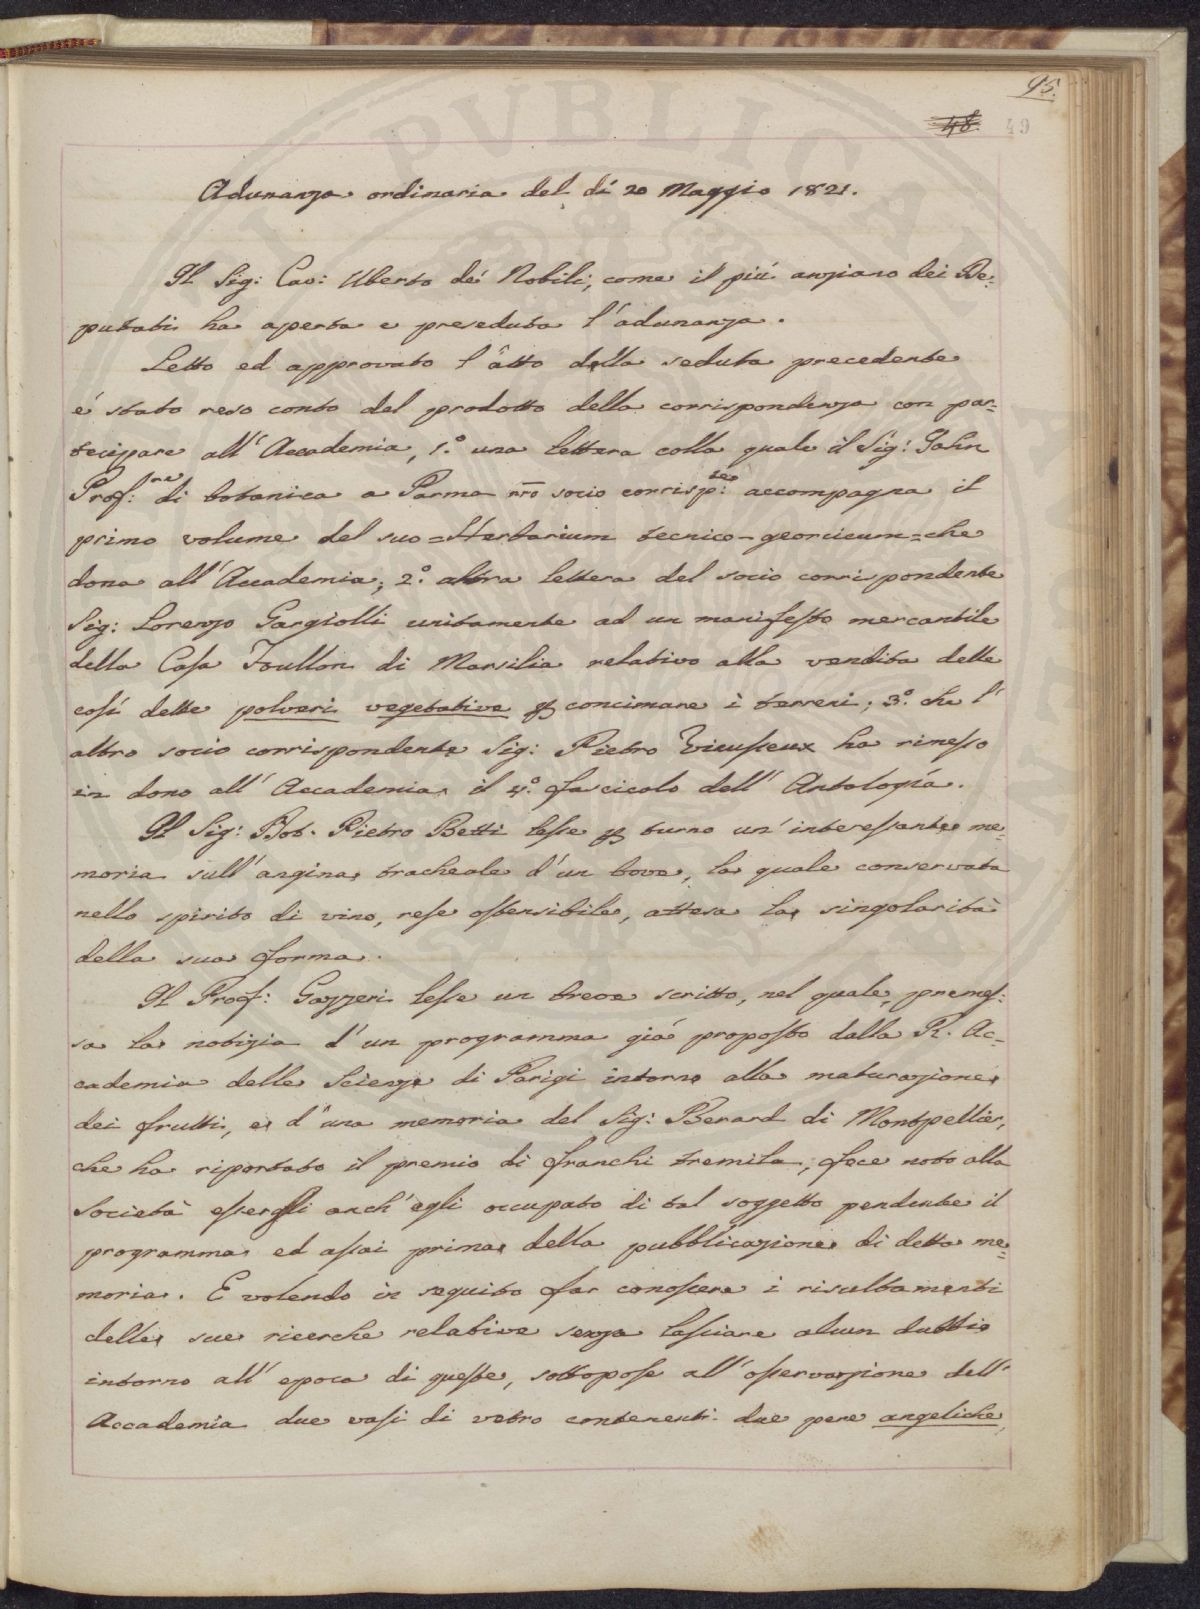 95.
48. 49
Adunanza ordinaria del dí 20 Maggio 1821.
Il Sig: Cav: Uberto dei Nobili, come il piú anziano dei De=
putati ha aperta e preseduta l'adunanza.
Letto ed approvato l'atto della seduta precedente
é stato reso conto del prodotto della corrispondenza con par=
tecipare all'Accademia, 1.° una lettera colla quale il Sig: Jahn
Prof:re di botanica a Parma nro socio corrisp:te accompagna il
primo volume del suo = Herbarium tecnico-georcicum = che
dona all'Accademia; 2.° altra lettera del socio corrispondente
Sig: Lorenzo Gargiolli unitamente ad un manifesto mercantile
della Casa Toullon di Marsilia relativo alla vendita delle
cosí dette polveri vegetative p concimare i terreni; 3.° che l'
altro socio corrispondente Sig: Pietro Vieusseux ha rimesso
in dono all'Accademia il 4.° fascicolo dell'Antología.
Il Sig: Dot. Pietro Betti lesse p turno un'interessante me=
moria sull'angina tracheale d'un bove, la quale conservata
nello spirito di vino, rese ostensibile, attesa la singolarità
della sua forma.
Il Prof: Gazzeri lesse un breve scritto, nel quale, premes=
sa la notizia d'un programma giá proposto dalla R. Ac=
cademia delle Scienze di Parigi intorno alla maturazione
dei frutti, e d'una memoria del Sig: Berard di Montpellier,
che ha riportato il premio di franchi tremila; fece noto alla
Società essergli anch'egli occupato di tal soggetto pendente il
programma ed assai prima della pubblicazione di detta me=
moria. E volendo in seguito far conoscere i risultamenti
delle sue ricerche relative senza lasciare alcun dubbio
intorno all'epoca di queste, sottopose all'osservazione dell'
Accademia due vasi di vetro contenenti due pere angeliche,